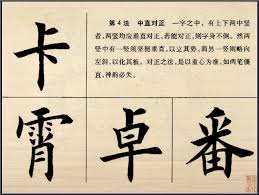 第4法 中直对正 一字之中，有上下两中竖
者，两竖均应垂直对正，若能对正，则字身不倒。然两
竖中有一竖须坚挺垂直，以立其势，而另一竖则略向
左斜，以化其板。对正之法，是以重心为准，如两笔僵
直，神韵必失。
卡
霄 卓 番